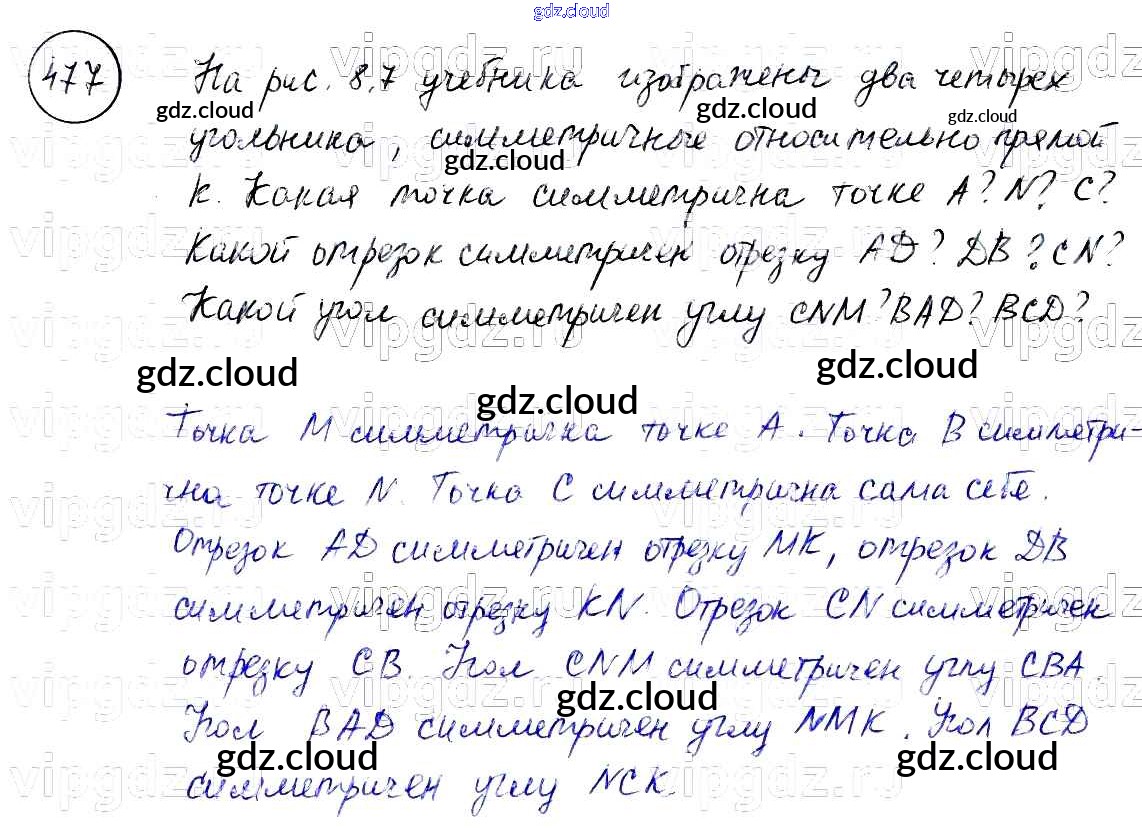 gdz.cloud
477 На рис. 8.7 учебника изображены два четырех
gdz.cloud gdz.cloud gdz.cloud
угольника, симметричные относительно прямой
gdz.cloud
k. Какая точка симметрична точке A? N? C?
Какой отрезок симметричен отрезку AD? DB? CN?
Какой угол симметричен углу CNM? BAD? BCD?
gdz.cloud gdz.cloud
gdz.cloud
Точка M симметрична точке A. Точка B симметри-
чна точке N. Точка C симметрична сама себе.
Отрезок AD симметричен отрезку MK, отрезок DB
симметричен отрезку KN. Отрезок CN симметричен
отрезку CB. Угол CNM симметричен углу CBA.
gdz.cloud
Угол BAD симметричен углу NMK. Угол BCD
gdz.cloud gdz.cloud
симметричен углу NCK.